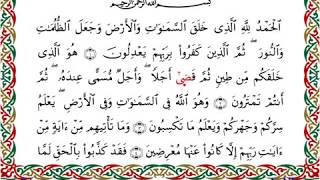 بسم الله الرحمن الرحيم
ٱلْحَمْدُ لِلَّهِ ٱلَّذِى خَلَقَ ٱلسَّمَٰوَٰتِ وَٱلْأَرْضَ وَجَعَلَ ٱلظُّلُمَٰتِ
وَٱلنُّورَ ۖ ثُمَّ ٱلَّذِينَ كَفَرُوا۟ بِرَبِّهِمْ يَعْدِلُونَ ۝ هُوَ ٱلَّذِى
خَلَقَكُم مِّن طِينٍ ثُمَّ قَضَىٰٓ أَجَلًا ۖ وَأَجَلٌ مُّسَمًّى عِندَهُۥ ۖ ثُمَّ
أَنتُمْ تَمْتَرُونَ ۝ وَهُوَ ٱللَّهُ فِى ٱلسَّمَٰوَٰتِ وَفِى ٱلْأَرْضِ ۖ يَعْلَمُ
سِرَّكُمْ وَجَهْرَكُمْ وَيَعْلَمُ مَا تَكْسِبُونَ ۝ وَمَا تَأْتِيهِم مِّنْ ءَايَةٍ مِّنْ
ءَايَٰتِ رَبِّهِمْ إِلَّا كَانُوا۟ عَنْهَا مُعْرِضِينَ ۝ فَقَدْ كَذَّبُوا۟ بِٱلْحَقِّ لَمَّا